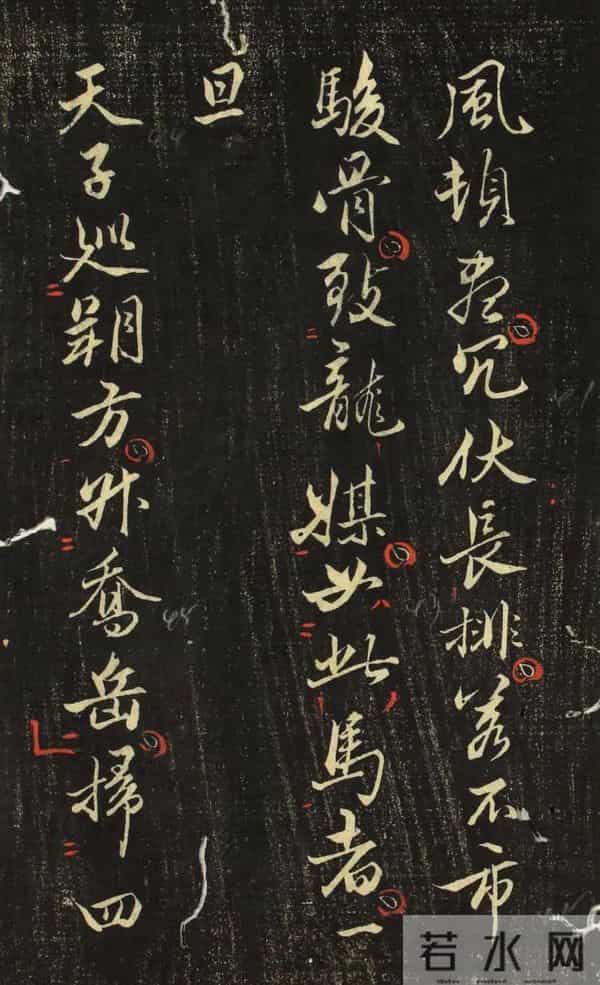 風頓盡冗仗長排若不市
駿骨致龍媒如此馬者一
旦
天子巡朔方升喬岳掃四
若水网